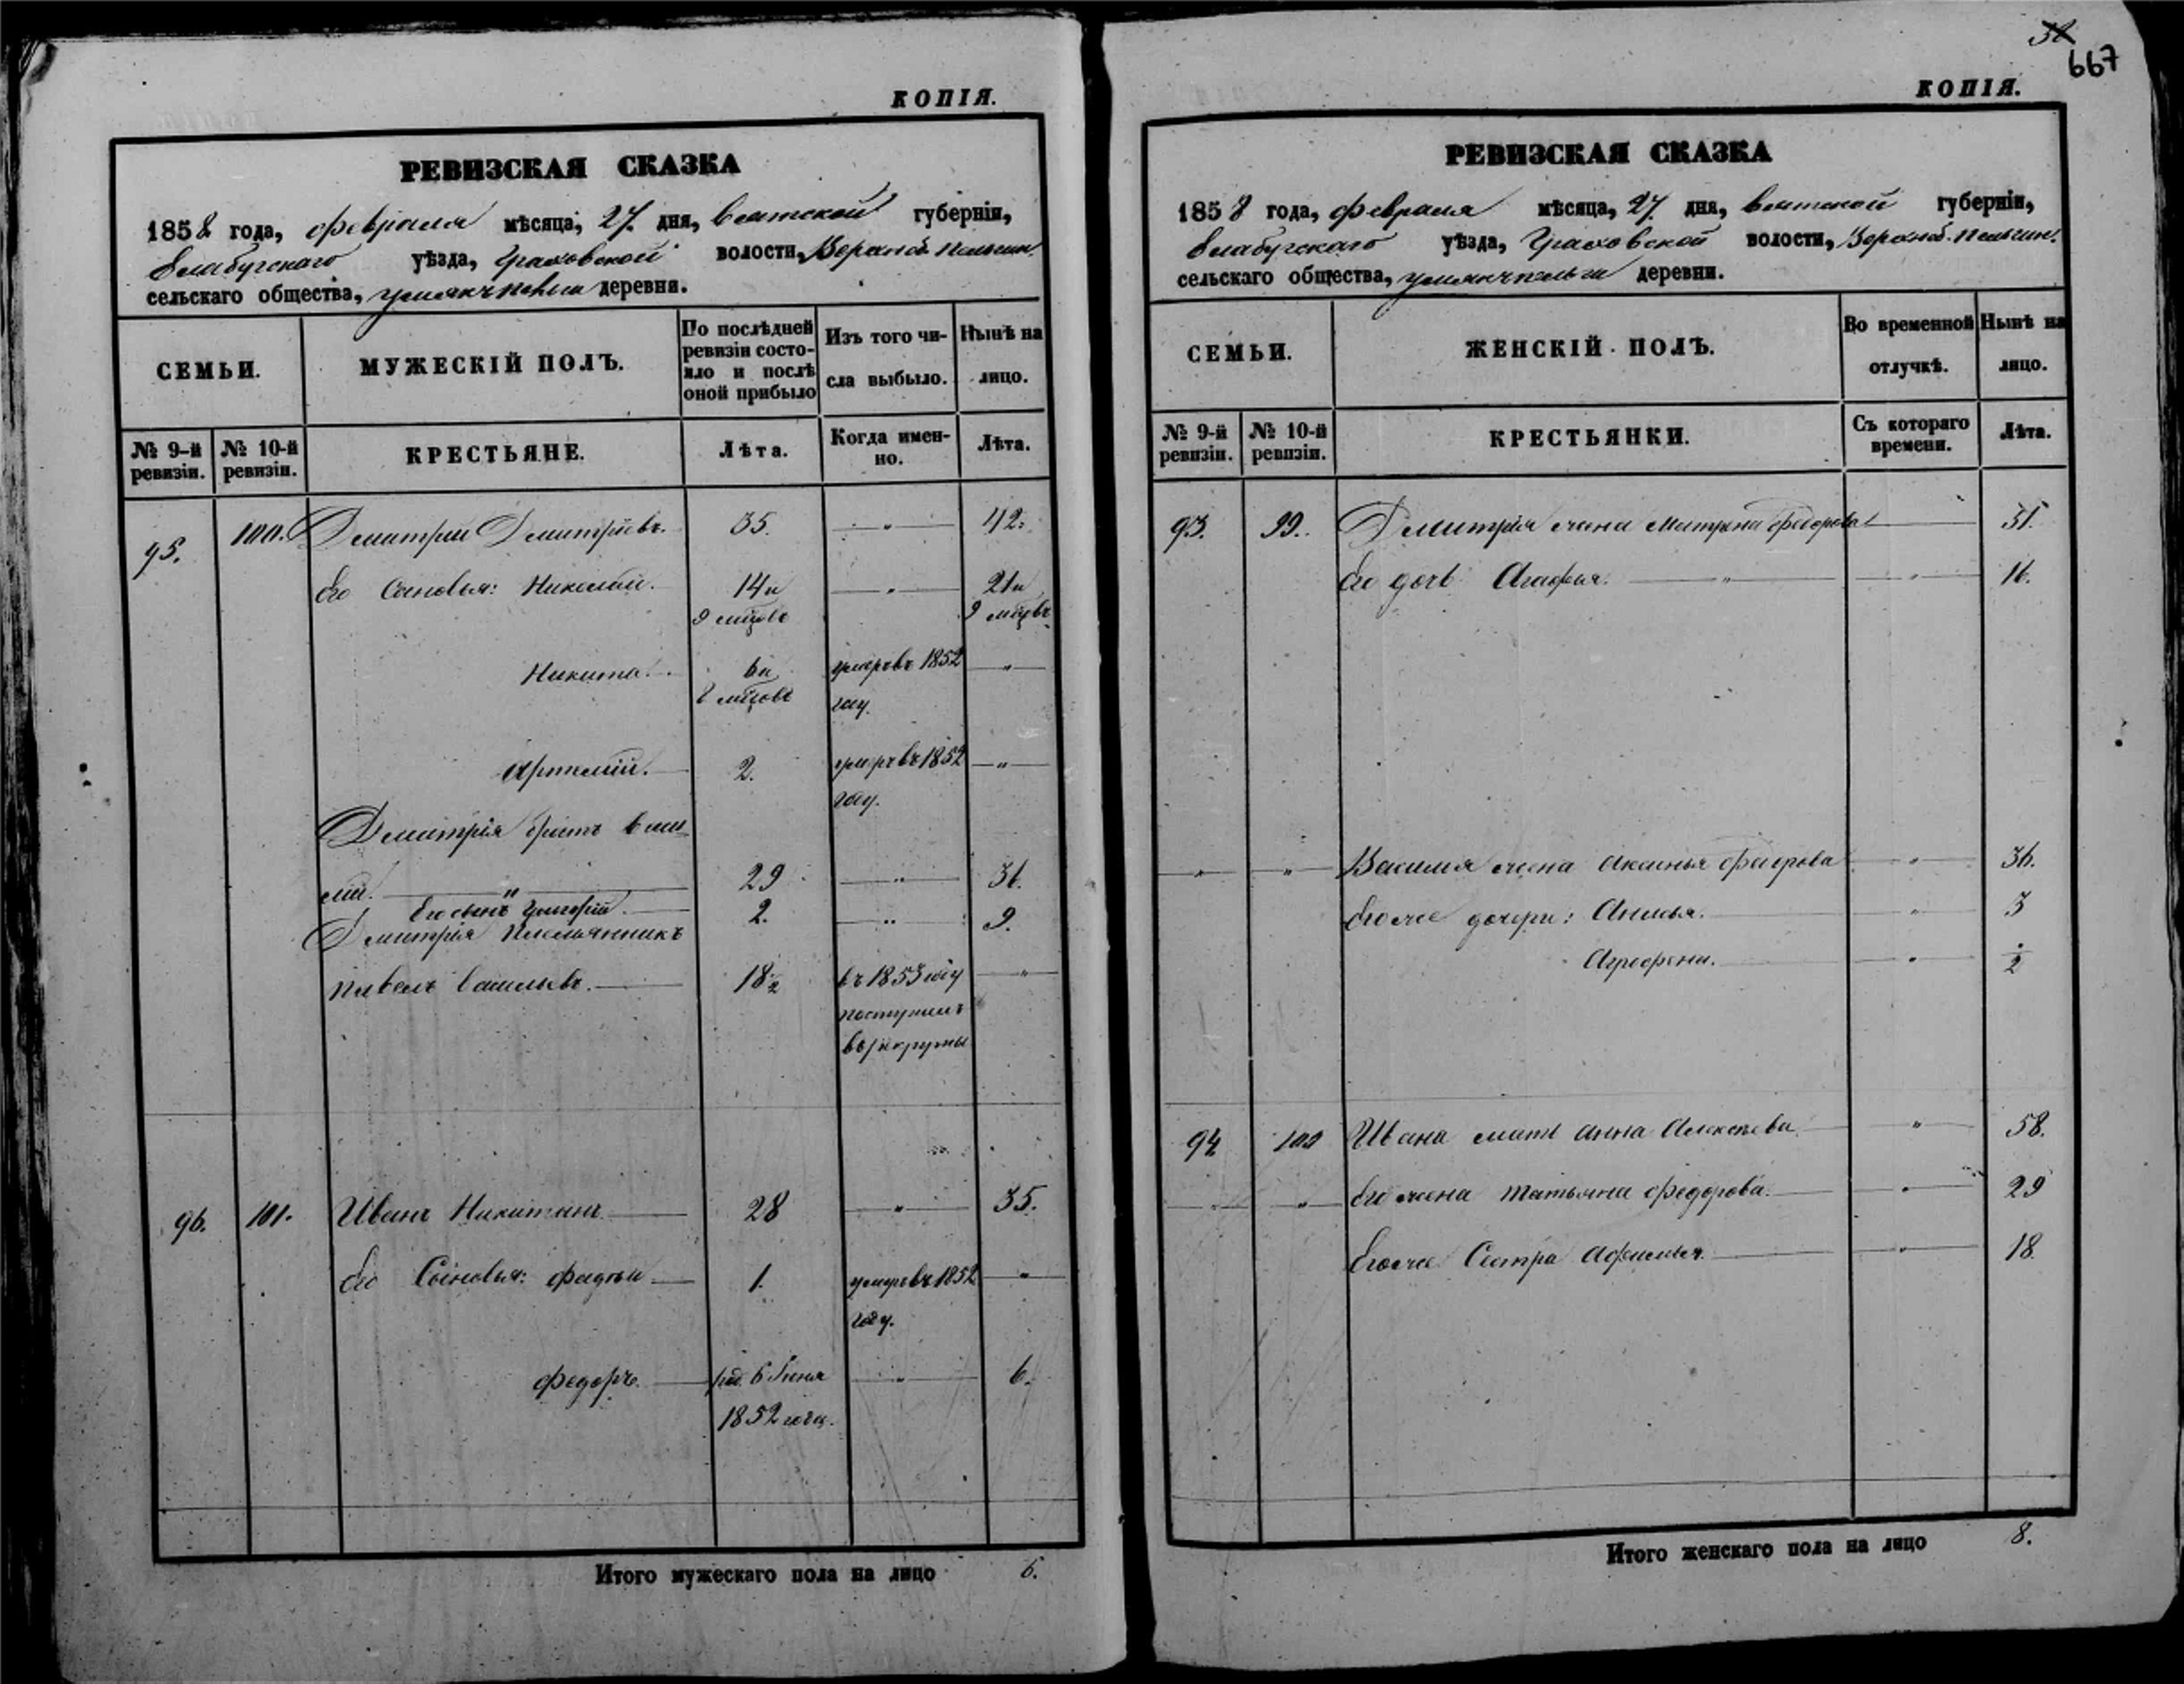 КОПІЯ.
РЕВИЗСКАЯ СКАЗКА
1858 года, февраля мѣсяца, 27. дня, Вятской губерніи,
Елабугскаго уѣзда, Граховской волости,
сельскаго общества, деревни.
СЕМЬИ.
МУЖЕСКІЙ ПОЛЪ.
По послѣдней ревизіи состо-
яло и послѣ оной прибыло
Изъ того чи-
сла выбыло.
Нынѣ на
лицо.
№ 9-й ревизіи.
№ 10-й ревизіи.
КРЕСТЬЯНЕ.
Лѣта.
Когда имен-
но.
Лѣта.
95. 100. Дмитрий Дмитріевъ. 35. — " — 42.
Его Сыновья: Николай. 14 и — " — 21 и
9 мѣцовъ 9 мѣцовъ
Никита. 6 и умеръ въ 1852 — " —
мѣцовъ году.
Артемій. 2. умеръ въ 1852 — " —
году.
Дмитрія братъ Васи
лій. — " — 29 — " — 36.
Его сынъ Григорій. 2. — " — 9.
Дмитрія племянникъ
Павелъ Васильевъ. 18½ въ 1853 году — " —
поступилъ
въ рекруты
96. 101. Иванъ Никитинъ 28 — " — 35.
Его Сыновья: Фадѣй 1. умеръ въ 1852 — " —
году.
Федоръ. род. 6 Іюня — " — 6.
1852 года.
Итого мужескаго пола на лицо 6.
38
667
КОПІЯ.
РЕВИЗСКАЯ СКАЗКА
1858 года, февраля мѣсяца, 27. дня, Вятской губерніи,
Елабугскаго уѣзда, Граховской волости,
сельскаго общества, деревни.
СЕМЬИ.
ЖЕНСКІЙ ПОЛЪ.
Во временной
отлучкѣ.
Нынѣ на
лицо.
№ 9-й ревизіи.
№ 10-й ревизіи.
КРЕСТЬЯНКИ.
Съ котораго
времени.
Лѣта.
93. 99. Дмитрія жена Матрена Федорова —
Его дочь Агафья. — " — — " — 16.
— " — — " — Василия жена Аксинья Федорова — " — 36.
Его же дочери: Анисья. — " — 3
Агрефена. — " — ½
94 100 Ивана мать Анна Алексѣева — " — 58.
— " — — " — Его жена Татьяна Федорова. — " — 29
Его же Сестра Афимья. — " — 18
Итого женскаго пола на лицо 8.